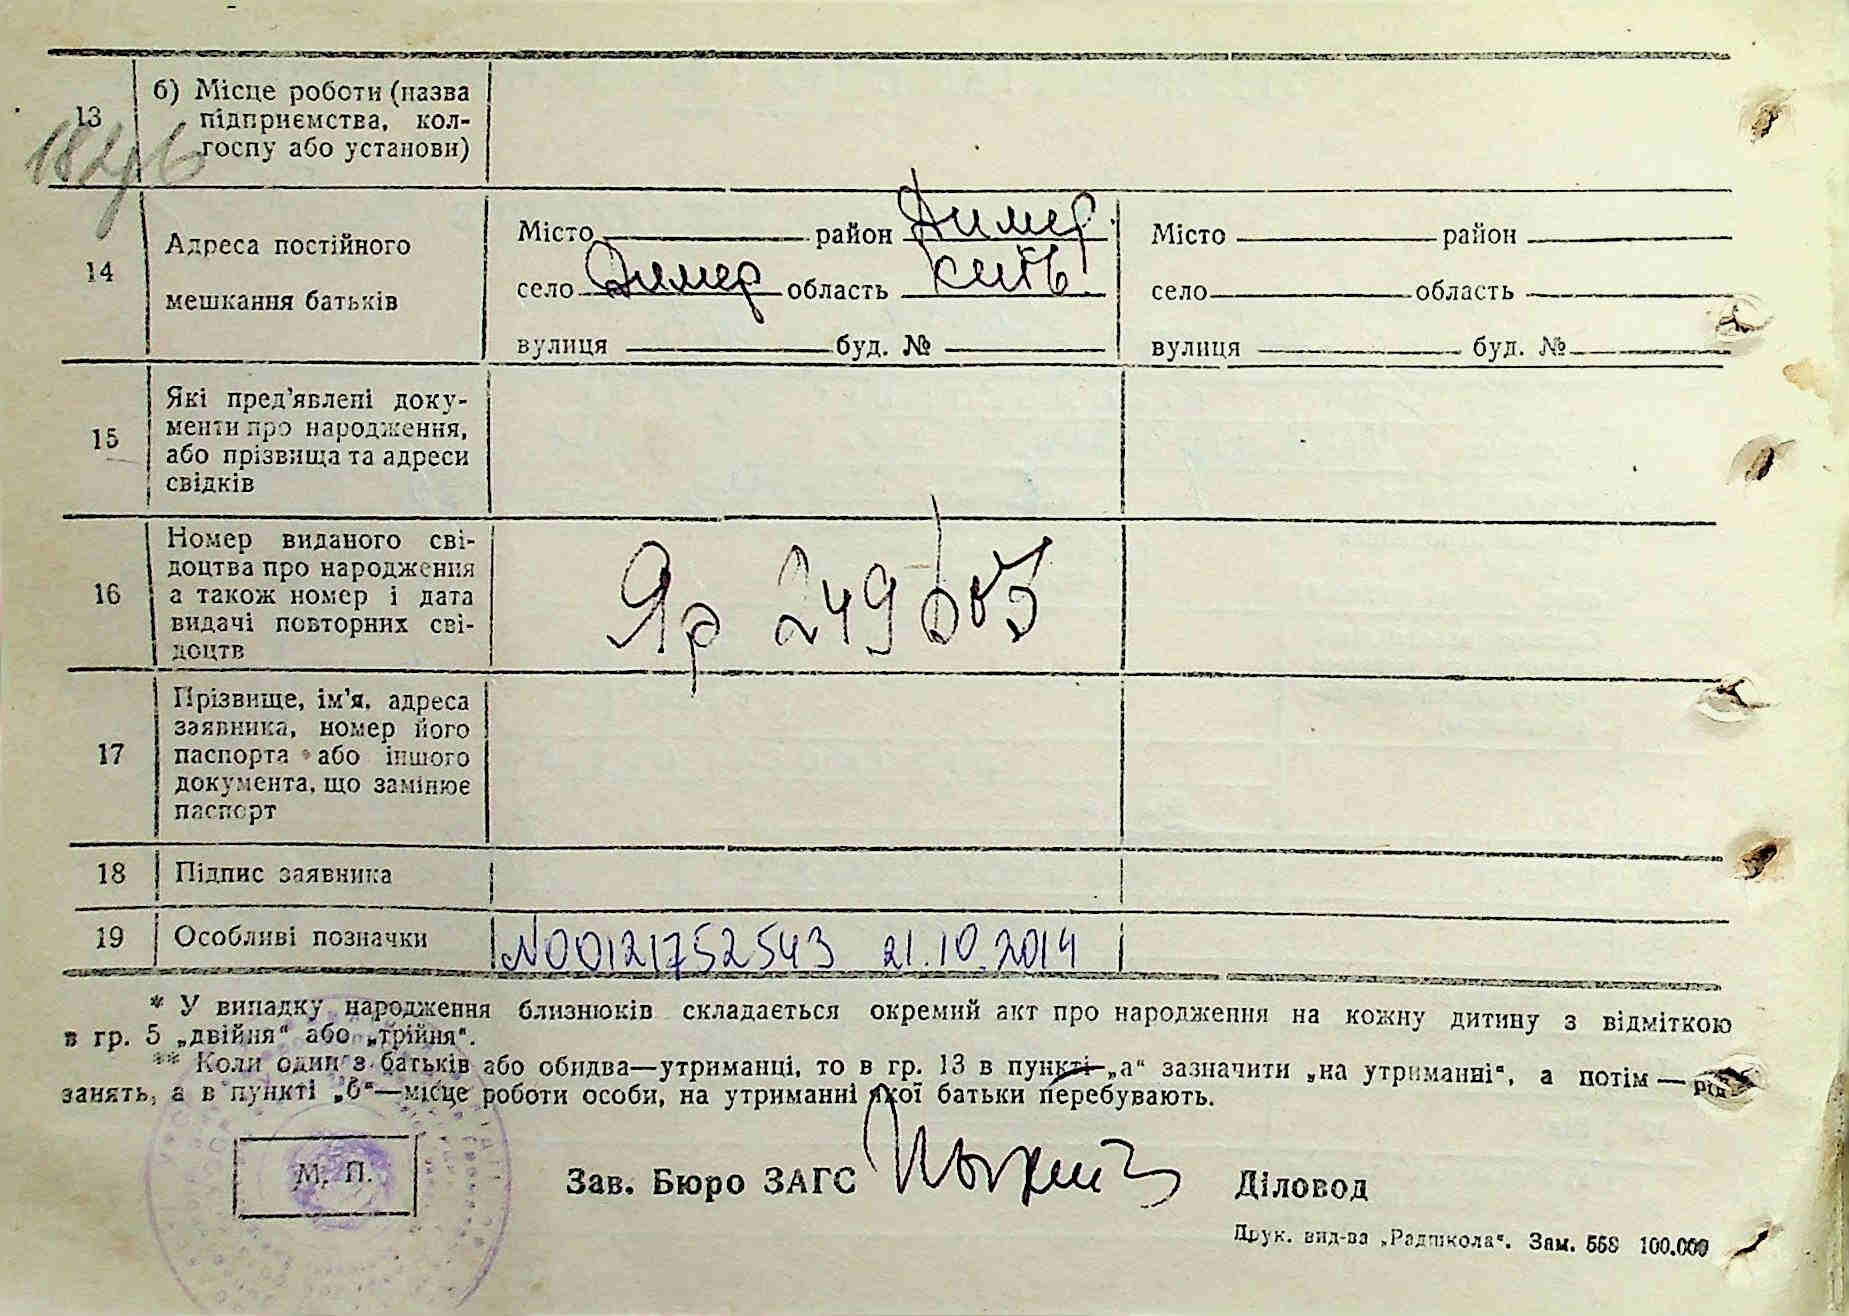 13
б) Місце роботи (назва
підприємства, кол-
госпу або установи)
1846
14
Адреса постійного
мешкання батьків
Місто район Димер.
село Димер область Київ.
вулиця буд. №
Місто район
село область
вулиця буд. №
15
Які пред'явлені доку-
менти про народження,
або прізвища та адреси
свідків
16
Номер виданого сві-
доцтва про народження
а також номер і дата
видачі повторних сві-
доцтв
Яр 249603
17
Прізвище, ім'я, адреса
заявника, номер його
паспорта або іншого
документа, що замінює
паспорт
18 Підпис заявника
19 Особливі позначки N00121752543 21.10.2014
* У випадку народження близнюків складається окремий акт про народження на кожну дитину з відміткою
в гр. 5 „двійня" або „трійня".
** Коли один з батьків або обидва—утриманці, то в гр. 13 в пункті „а" зазначити „на утриманні", а потім — рід
занять, а в пункті „б"—місце роботи особи, на утриманні якої батьки перебувають.
М. П.
Зав. Бюро ЗАГС
Діловод
Друк. вид-ва „Радшкола". Зам. 558 100.000